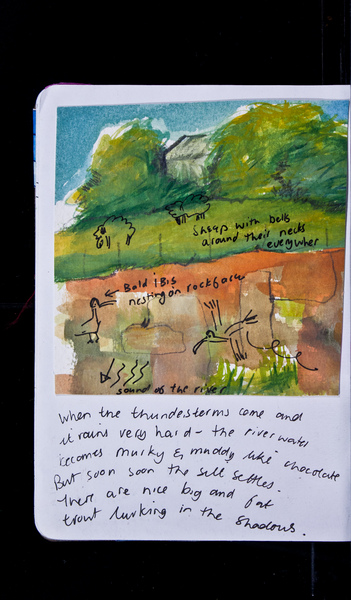 Sheep with bells
around their necks
everywher
Bald iBis
nesting on rockfaces
sound of the river
when the thunderstorms come and
it rains very hard - the river water
becomes murky & muddy like chocolate
But soon soon the silt settles.
There are nice big and fat
trout lurking in the shadows.